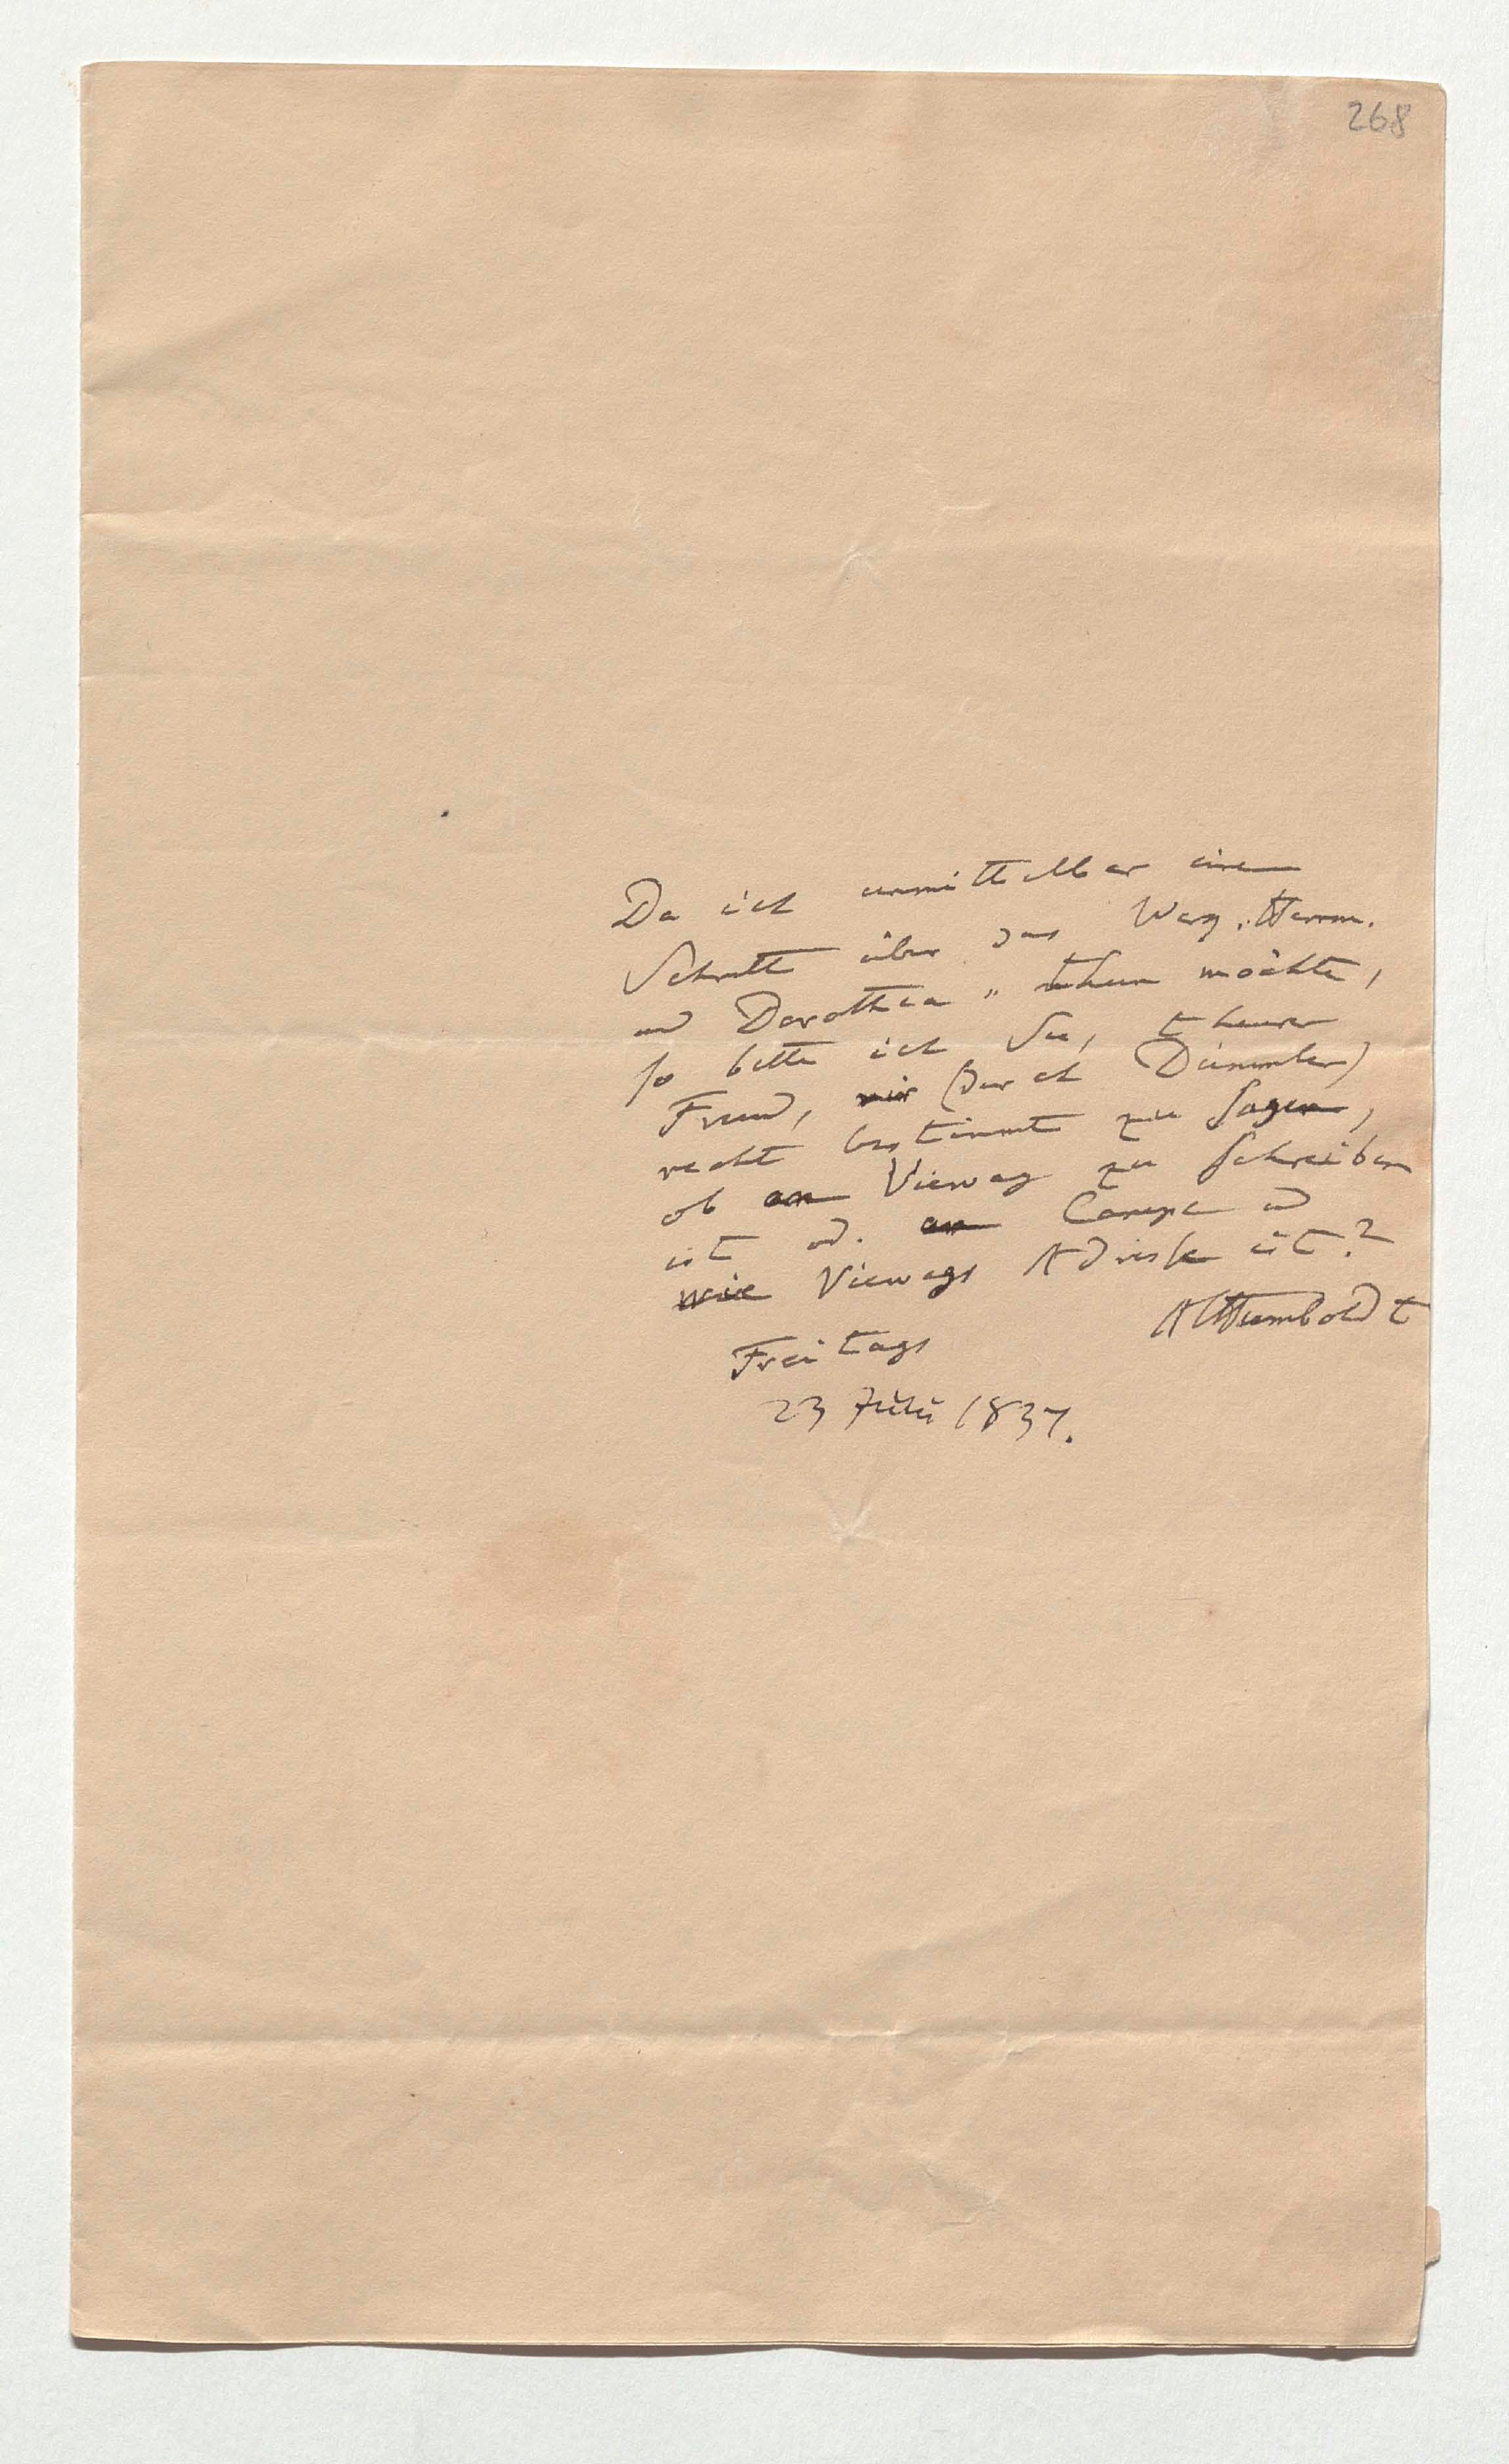 268
Da ich unmittelbar einen
Schritt über das Werg „Herrm.
und Dorothea" thun möchte,
so bitte ich Sie, theurer
Freund, mir (durch Dümmler)
recht bestimmt zu sagen,
ob an Vieweg zu schreiben
ist od. an Campe und
wie Viewegs Adresse ist?
AlHumboldt
Freitags
23 Juli 1837.